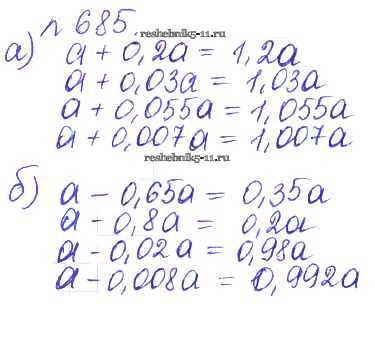 № 685.
reshebnik5-11.ru
а) a + 0,2a = 1,2a
a + 0,03a = 1,03a
a + 0,055a = 1,055a
a + 0,007a = 1,007a
reshebnik5-11.ru
б) a - 0,65a = 0,35a
a - 0,8a = 0,2a
a - 0,02a = 0,98a
a - 0,008a = 0,992a